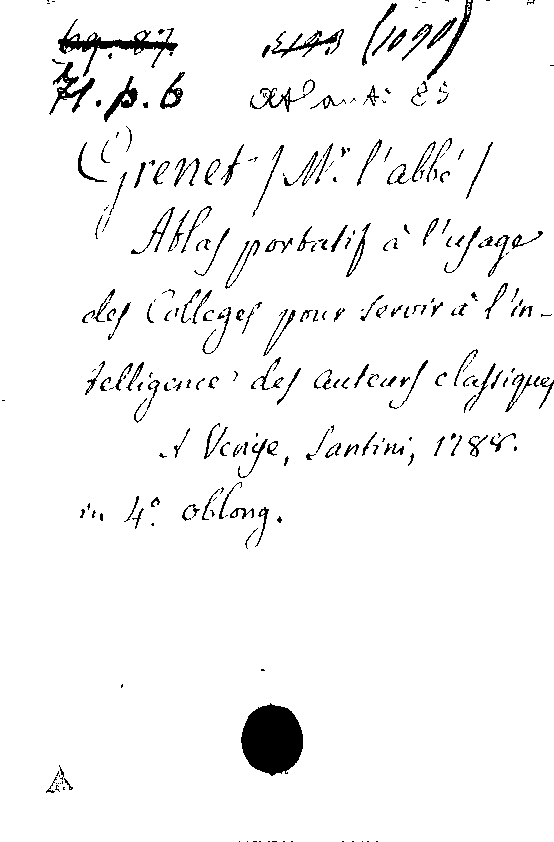 (1090)
71.p.6 Atlanti 85
Grenet / Mr. l'abbé /
Atlas portatif à l'usage
des Colleges pour servir à l'in-
telligence des auteurs classiques
A Venise, Santini, 1788.
in 4º oblong.